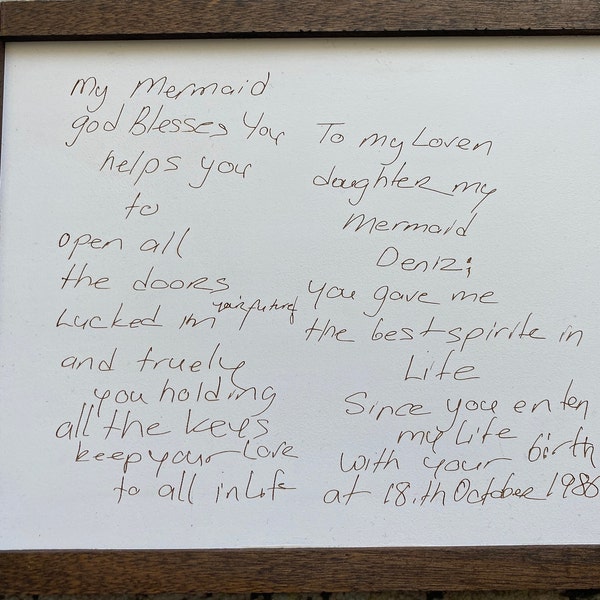 My Mermaid
god Blesses You
helps you
to
open all
the doors
Lucked in your future
and truely
you holding
all the keys
keep your Love
to all in Life
To my Loven
daughter my
Mermaid
Deniz;
you gave me
the best spirite in
Life
Since you enten
my Life
with your birth
at 18.th October 1986